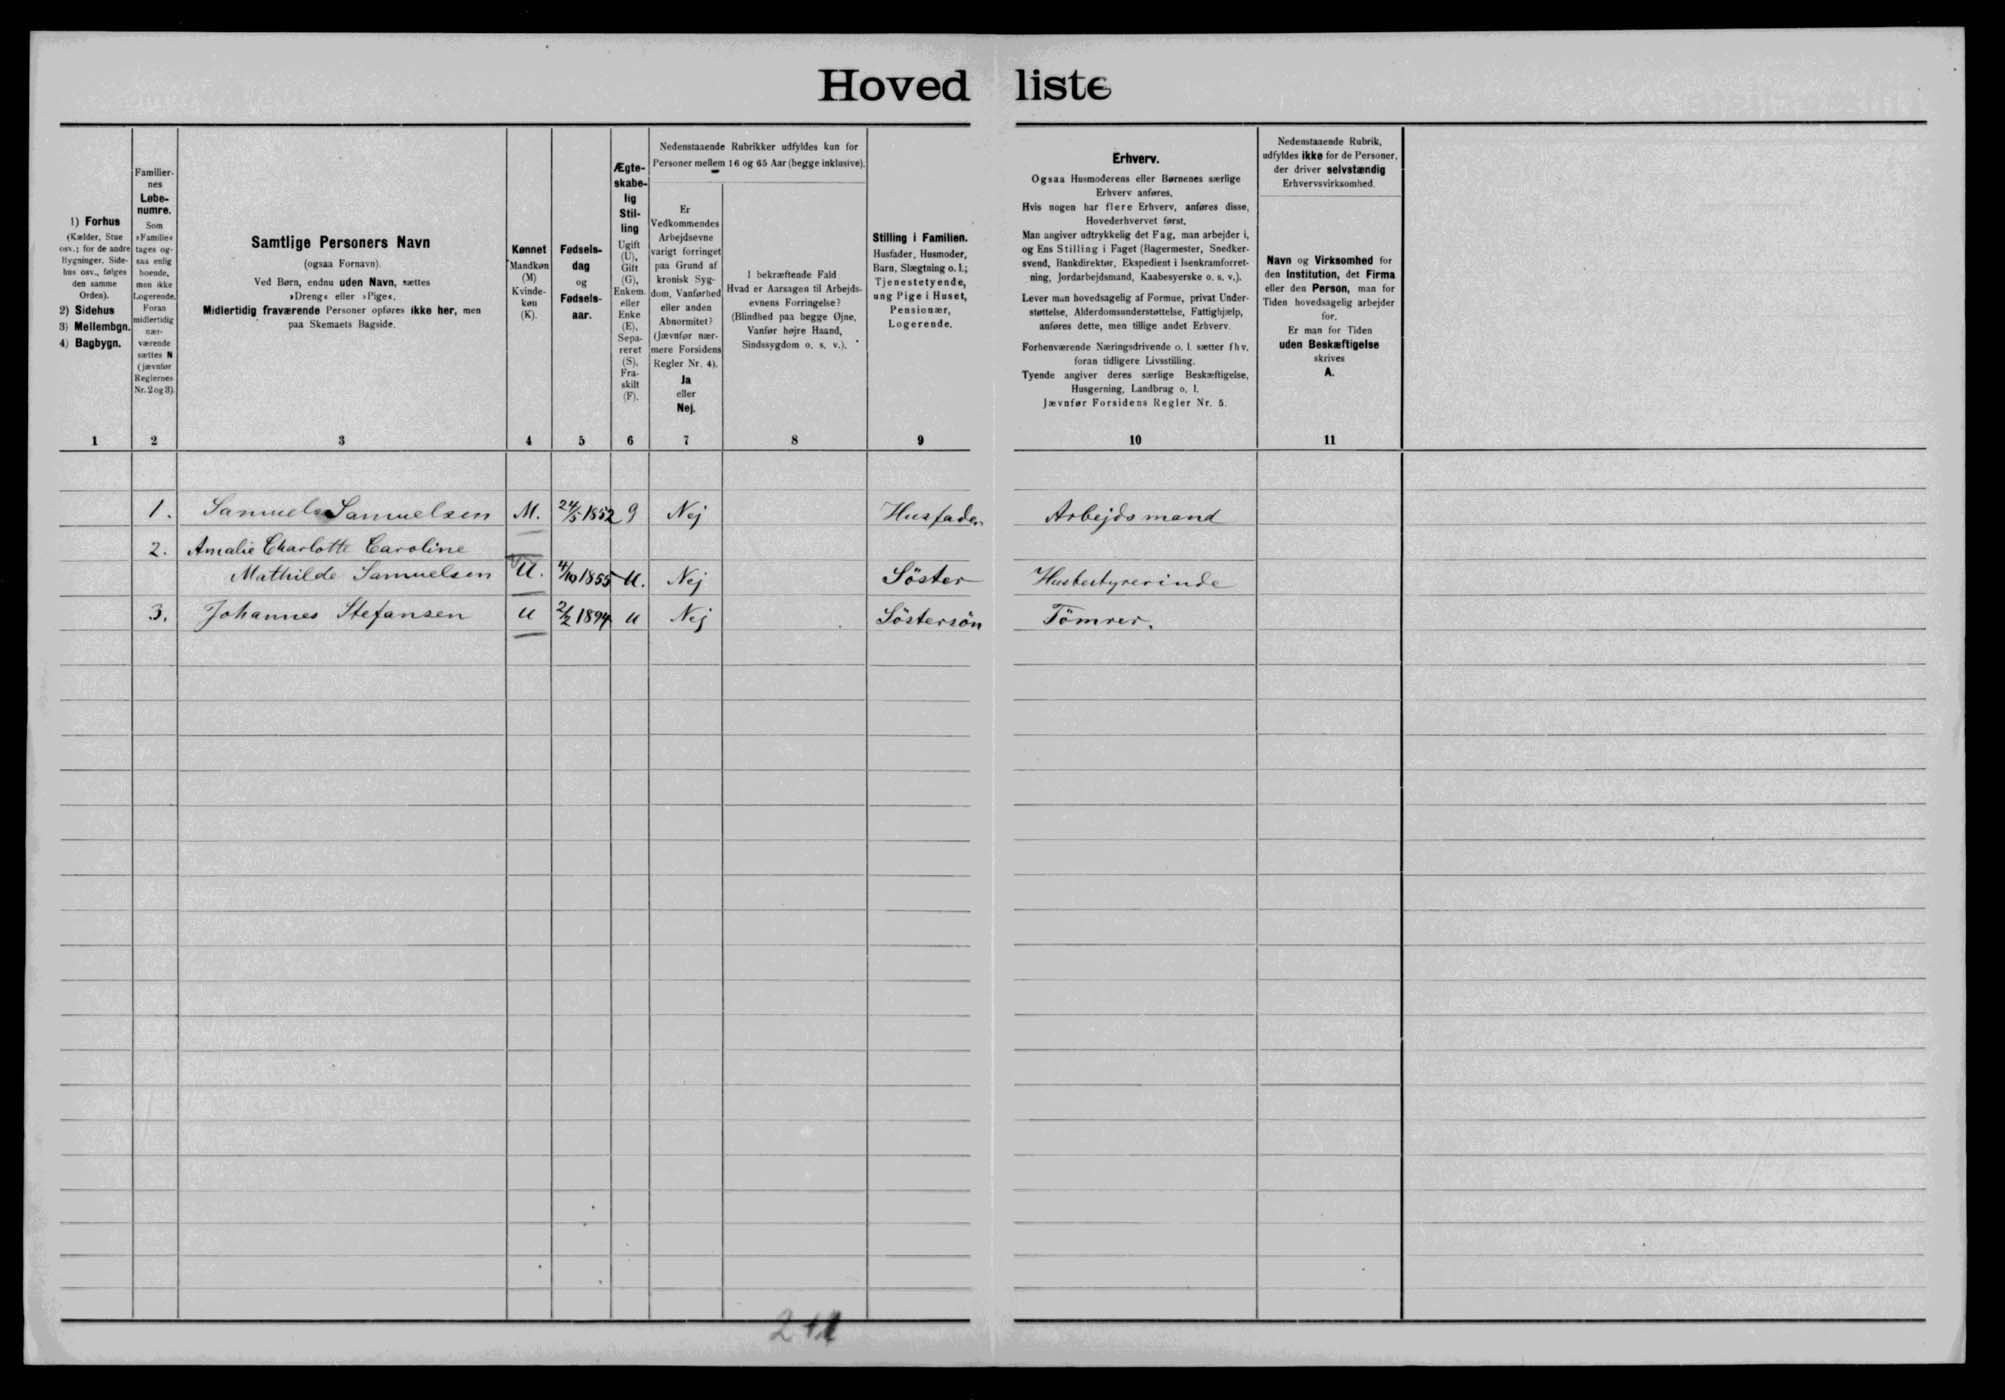 Hovedliste
1) Forhus
(Kælder, Stue
osv.; for de andre
Bygninger, Side-
hus osv., følges
den samme
Orden).
2) Sidehus
3) Mellembgn.
4) Bagbygn.
1
Familier-
nes
Løbe-
numre.
Som
»Familie«
tages og-
saa enlig
boende,
men ikke
Logerende.
Foran
midlertidig
nær-
værende
sættes N
(jævnfør
Reglernes
Nr. 2 og 3).
2
Samtlige Personers Navn
(ogsaa Fornavn).
Ved Børn, endnu uden Navn, sættes
»Dreng« eller »Pige«.
Midlertidig fraværende Personer opføres ikke her, men
paa Skemaets Bagside.
3
Kønnet
Mandkøn
(M)
Kvinde-
køn
(K).
4
Fødsels-
dag
og
Fødsels-
aar.
5
Ægte-
skabe-
lig
Stil-
ling
Ugift
(U),
Gift
(G),
Enkem.
eller
Enke
(E),
Sepa-
reret
(S),
Fra-
skilt
(F).
6
Nedenstaaende Rubrikker udfyldes kun for
Personer mellem 16 og 65 Aar (begge inklusive).
Er
Vedkommendes
Arbejdsevne
varigt forringet
paa Grund af
kronisk Syg-
dom, Vanførhed
eller anden
Abnormitet?
(Jævnfør nær-
mere Forsidens
Regler Nr. 4).
Ja
eller
Nej.
7
I bekræftende Fald
Hvad er Aarsagen til Arbejds-
evnens Forringelse?
(Blindhed paa begge Øjne,
Vanfør højre Haand,
Sindssygdom o. s. v.).
8
Stilling i Familien.
Husfader, Husmoder,
Barn, Slægtning o. l.;
Tjenestetyende,
ung Pige i Huset,
Pensionær,
Logerende.
9
Erhverv.
Ogsaa Husmoderens eller Børnenes særlige
Erhverv anføres.
Hvis nogen har flere Erhverv, anføres disse,
Hovederhvervet først.
Man angiver udtrykkelig det Fag, man arbejder i,
og Ens Stilling i Faget (Bagermester, Snedker-
svend, Bankdirektør, Ekspedient i Isenkramforret-
ning, Jordarbejdsmand, Kaabesyerske o. s. v.).
Lever man hovedsagelig af Formue, privat Under-
støttelse, Alderdomsunderstøttelse, Fattighjælp,
anføres dette, men tillige andet Erhverv.
Forhenværende Næringsdrivende o. l. sætter fhv.
foran tidligere Livsstilling.
Tyende angiver deres særlige Beskæftigelse,
Husgerning, Landbrug o. l.
Jævnfør Forsidens Regler Nr. 5.
10
Nedenstaaende Rubrik,
udfyldes ikke for de Personer,
der driver selvstændig
Erhvervsvirksomhed.
Navn og Virksomhed for
den Institution, det Firma
eller den Person, man for
Tiden hovedsagelig arbejder
for.
Er man for Tiden
uden Beskæftigelse
skrives
A.
11
1. Samuel Samuelsen M. 24/5 1852 g Nej Husfader Arbejdsmand
2. Amalie Charlotte Caroline
Mathilde Samuelsen U. 4/10 1855 U. Nej Söster Husbestyrerinde
3. Johannes Stefansen U 2/2 1894 U Nej Söstersön Tömrer.
2+1